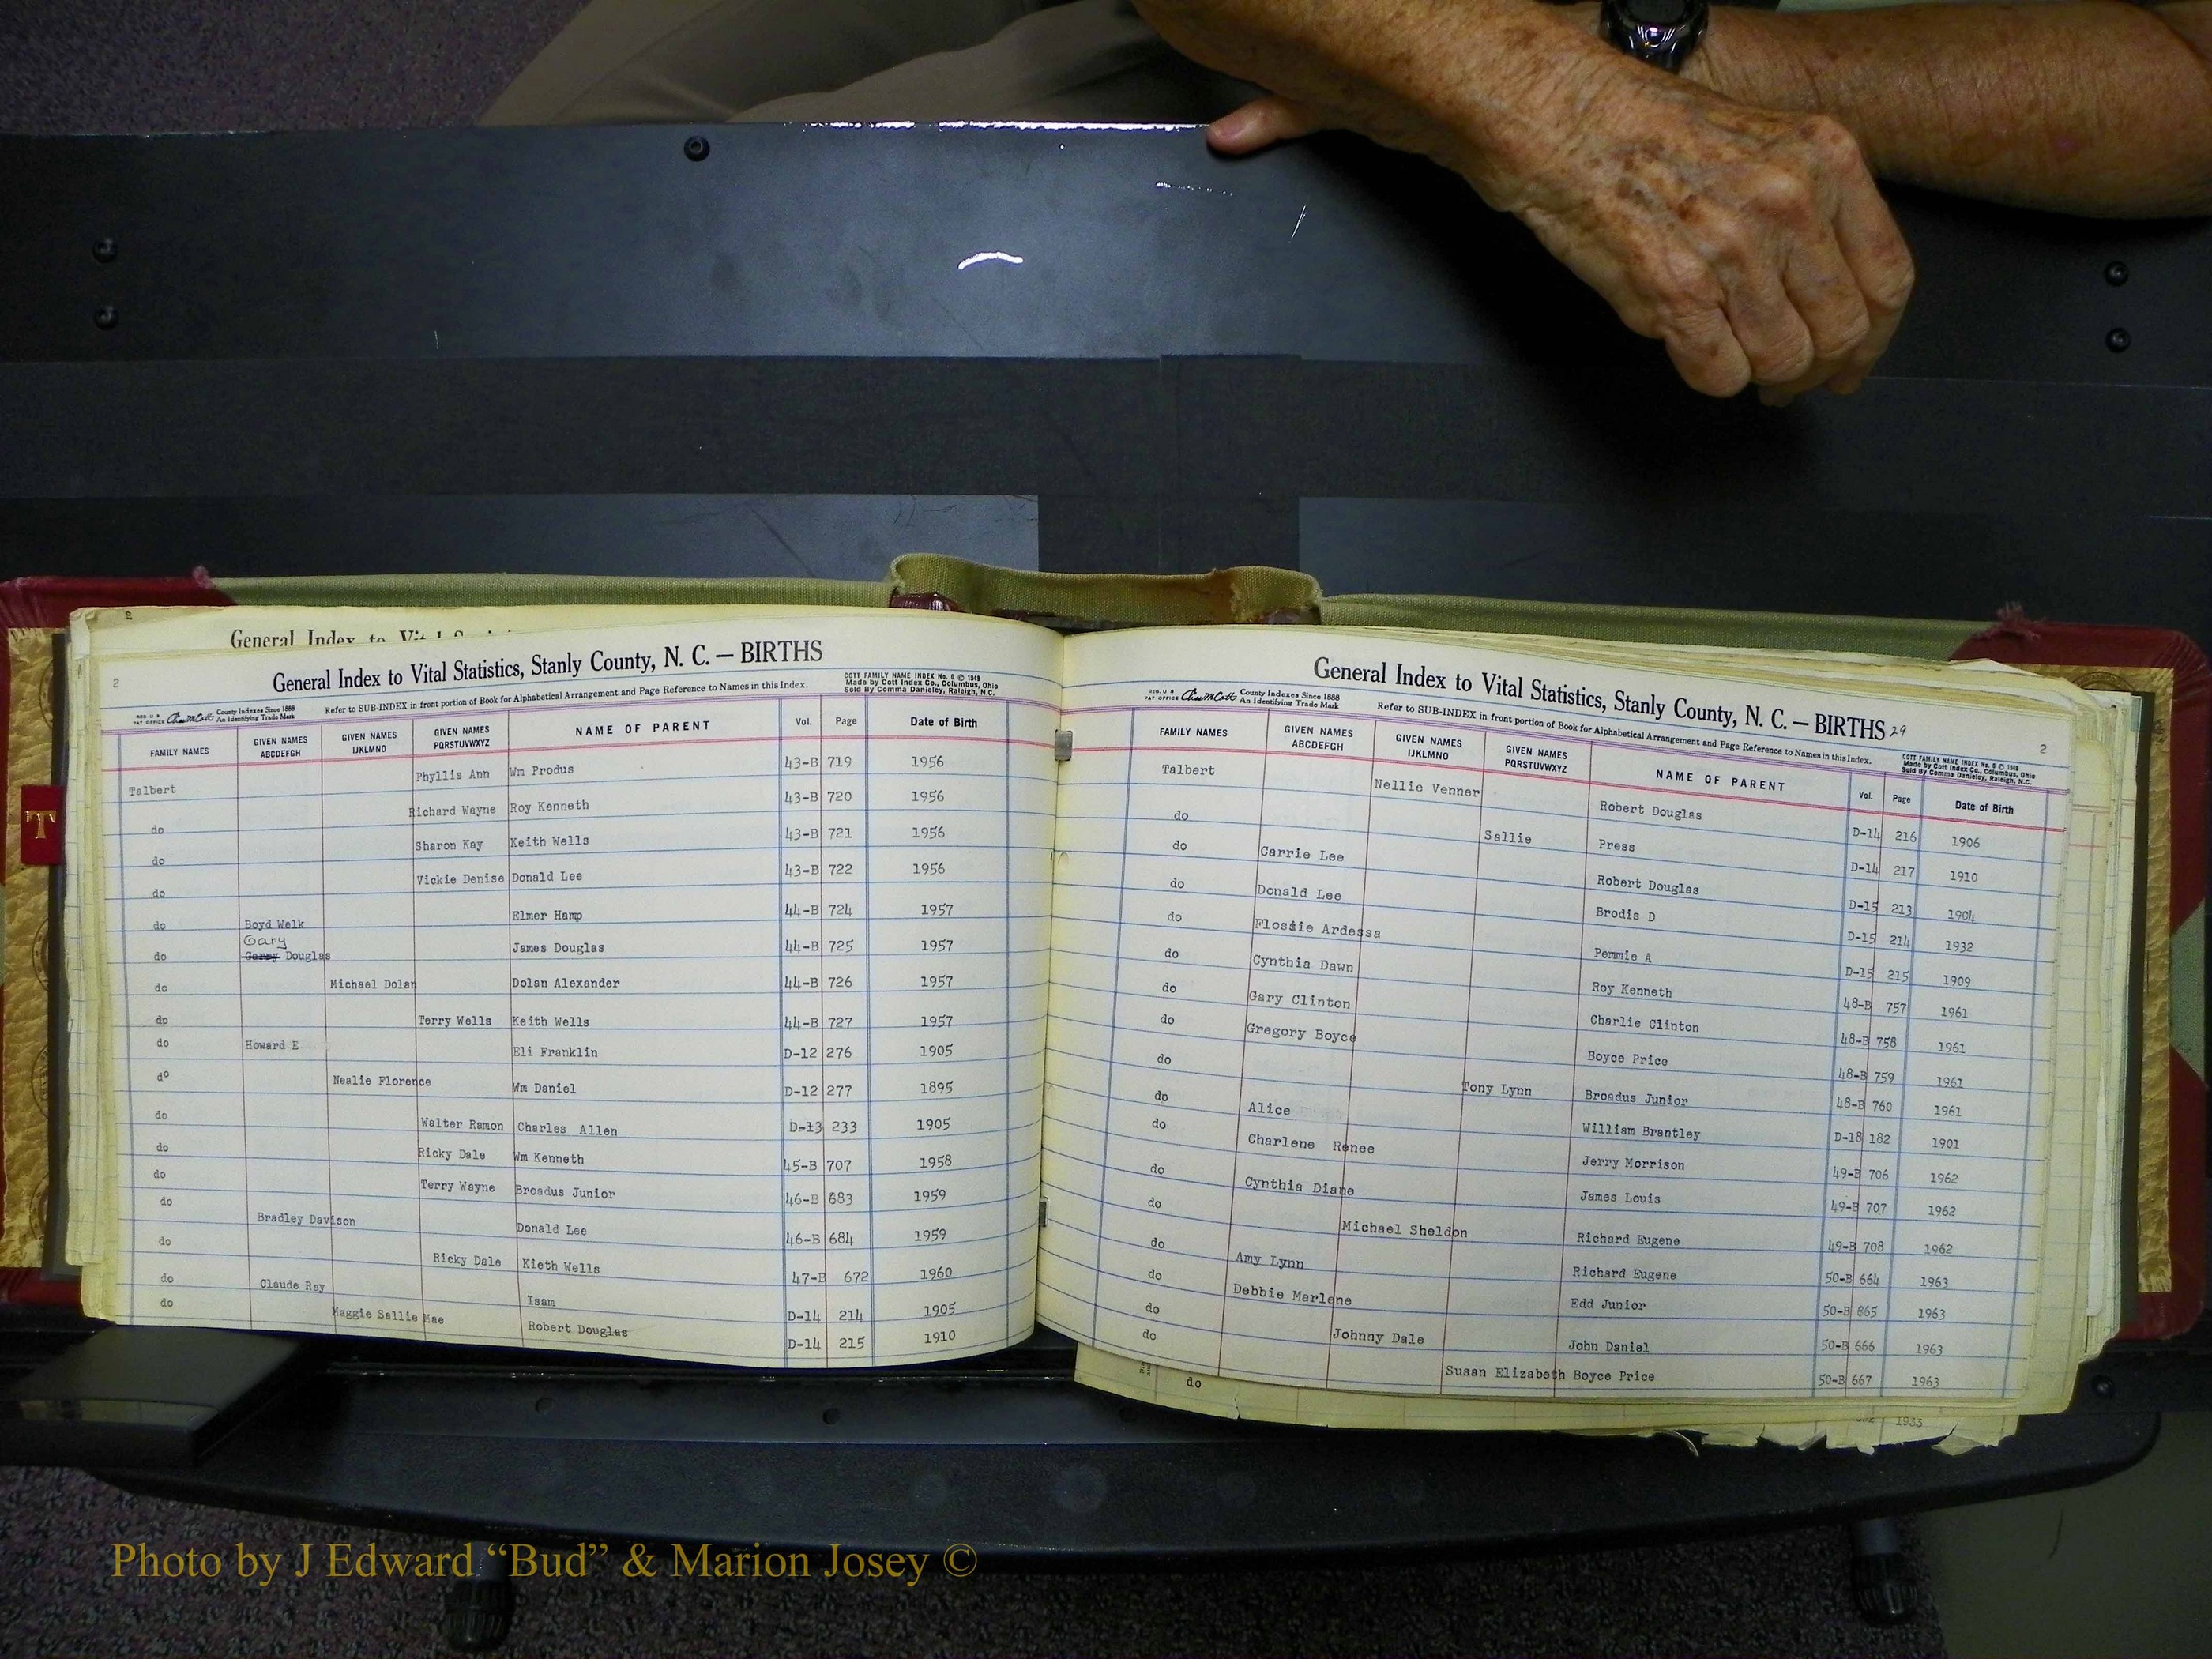 2
General Index to Vital Statistics, Stanly County, N. C. — BIRTHS
COTT FAMILY NAME INDEX No. 6 © 1949
Made by Cott Index Co., Columbus, Ohio
Sold By Comma Danieley, Raleigh, N.C.
County Indexes Since 1888
An Identifying Trade Mark
Refer to SUB-INDEX in front portion of Book for Alphabetical Arrangement and Page Reference to Names in this Index.
FAMILY NAMES GIVEN NAMES ABCDEFGH GIVEN NAMES IJKLMNO GIVEN NAMES PQRSTUVWXYZ NAME OF PARENT Vol. Page Date of Birth
Talbert Phyllis Ann Wm Produs 43-B 719 1956
do Richard Wayne Roy Kenneth 43-B 720 1956
do Sharon Kay Keith Wells 43-B 721 1956
do Vickie Denise Donald Lee 43-B 722 1956
do Boyd Welk Elmer Hamp 44-B 724 1957
Gary
do Garry Douglas James Douglas 44-B 725 1957
do Michael Dolan Dolan Alexander 44-B 726 1957
do Terry Wells Keith Wells 44-B 727 1957
do Howard E Eli Franklin D-12 276 1905
do Nealie Florence Wm Daniel D-12 277 1895
do Walter Ramon Charles Allen D-13 233 1905
do Ricky Dale Wm Kenneth 45-B 707 1958
do Terry Wayne Broadus Junior 46-B 683 1959
do Bradley Davison Donald Lee 46-B 684 1959
do Ricky Dale Kieth Wells 47-B 672 1960
do Claude Ray Isam D-14 214 1905
do Maggie Sallie Mae Robert Douglas D-14 215 1910
General Index to Vital Statistics, Stanly County, N. C. — BIRTHS 29
2
County Indexes Since 1888
An Identifying Trade Mark
Refer to SUB-INDEX in front portion of Book for Alphabetical Arrangement and Page Reference to Names in this Index.
COTT FAMILY NAME INDEX No. 6 © 1949
Made by Cott Index Co., Columbus, Ohio
Sold By Comma Danieley, Raleigh, N.C.
FAMILY NAMES GIVEN NAMES ABCDEFGH GIVEN NAMES IJKLMNO GIVEN NAMES PQRSTUVWXYZ NAME OF PARENT Vol. Page Date of Birth
Talbert Nellie Venner Robert Douglas D-14 216 1906
do Sallie Press D-14 217 1910
do Carrie Lee Robert Douglas D-15 213 1904
do Donald Lee Brodis D D-15 214 1932
do Flossie Ardessa Pemmie A D-15 215 1909
do Cynthia Dawn Roy Kenneth 48-B 757 1961
do Gary Clinton Charlie Clinton 48-B 758 1961
do Gregory Boyce Boyce Price 48-B 759 1961
do Tony Lynn Broadus Junior 48-B 760 1961
do Alice William Brantley D-18 182 1901
do Charlene Renee Jerry Morrison 49-B 706 1962
do Cynthia Diane James Louis 49-B 707 1962
do Michael Sheldon Richard Eugene 49-B 708 1962
do Amy Lynn Richard Eugene 50-B 664 1963
do Debbie Marlene Edd Junior 50-B 665 1963
do Johnny Dale John Daniel 50-B 666 1963
do Susan Elizabeth Boyce Price 50-B 667 1963
do 1933
T
Photo by J Edward “Bud” & Marion Josey ©